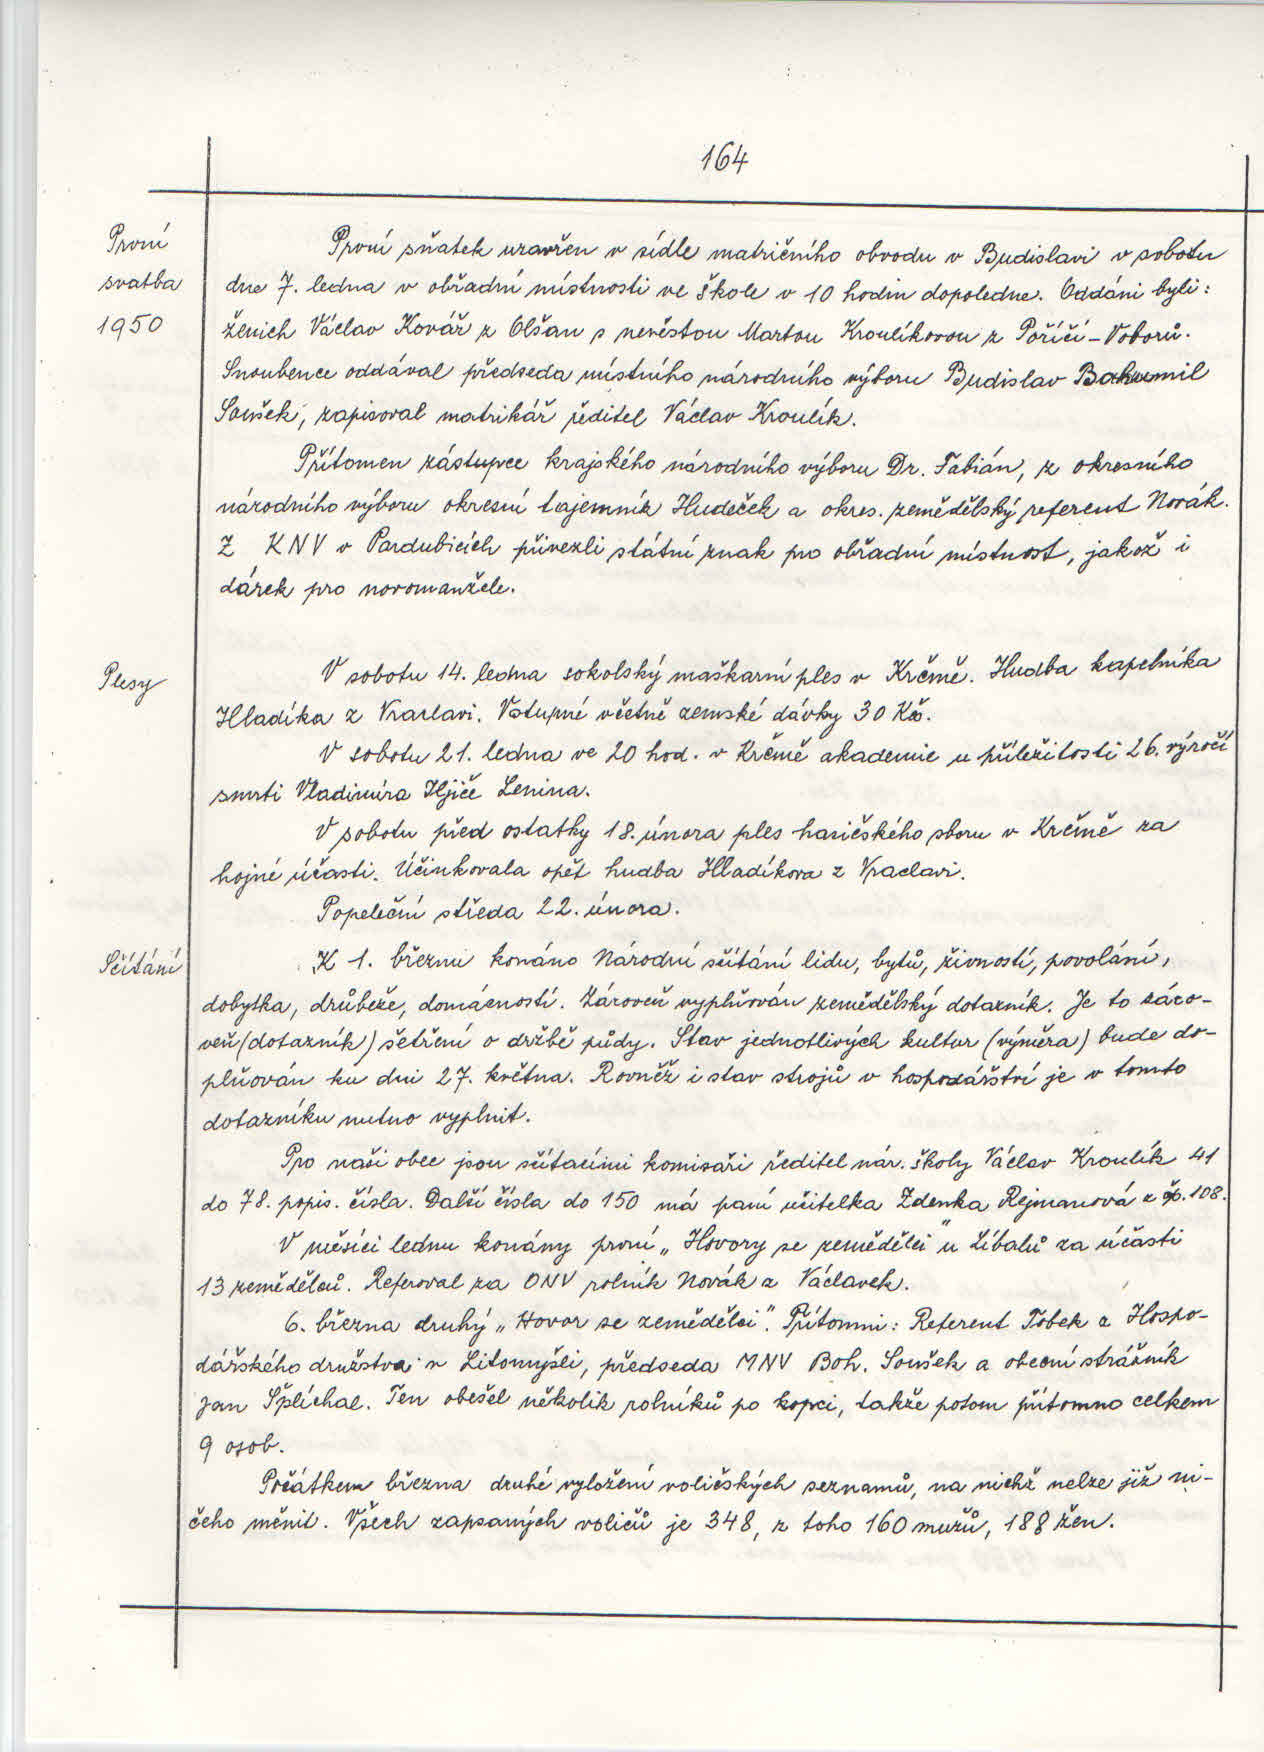 164
První
svatba
1950
První sňatek uzavřen v sídle matričního obvodu v Budislavi v sobotu
dne 7. ledna v obřadní místnosti ve škole v 10 hodin dopoledne. Oddáni byli:
ženich Václav Kovář z Olšan s nevěstou Martou Kroulíkovou z Poříčí - Voborů.
Snoubence oddával předseda místního národního výboru Budislav Bohumil
Soušek, zapisoval matrikář ředitel Václav Kroulík.
Přítomen zástupce krajského národního výboru Dr. Fabián, z okresního
národního výboru okresní tajemník Hudeček a okres. zemědělský referent Novák.
Z KNV v Pardubicích přivezli státní znak pro obřadní místnost, jakož i
dárek pro novomanžele.
Plesy
V sobotu 14. ledna sokolský maškarní ples v Krčmě. Hudba kapelníka
Hladíka z Vraclavi. Vstupné včetně zemské dávky 30 Kčs.
V sobotu 21. ledna ve 20 hod. v Krčmě akademie u příležitosti 26. výročí
smrti Vladimíra Iljiče Lenina.
V sobotu před ostatky 18. února ples hasičského sboru v Krčmě za
hojné účasti. Účinkovala opět hudba Hladíkova z Vraclavi.
Popeleční středa 22. února.
Sčítání
K 1. březnu konáno Národní sčítání lidu, bytů, živností, povolání,
dobytka, drůbeže, domácností. Zároveň vyplňován zemědělský dotazník. Je to záro-
veň (dotazník) šetření o držbě půdy. Stav jednotlivých kultur (výměra) bude do-
plňován ku dni 27. května. Rovněž i stav strojů v hospodářství je v tomto
dotazníku nutno vyplnit.
Pro naši obec jsou sčítacími komisaři ředitel nár. školy Václav Kroulík 41
do 78. popis. čísla. Další čísla do 150 má paní učitelka Zdenka Rejmanová z čp. 108.
V měsíci lednu konány první „Hovory se zemědělci" u Líbalů za účasti
13 zemědělců. Referoval za ONV rolník Novák a Václavek.
6. března druhý „Hovor se zemědělci". Přítomni: Referent Tobek z Hospo-
dářského družstva v Litomyšli, předseda MNV Boh. Soušek a obecní strážník
Jan Šplíchal. Ten obešel několik rolníků po kopci, takže potom přítomno celkem
9 osob.
Počátkem března druhé vyložení voličských seznamů, na nichž nelze již ni-
čeho měnit. Všech zapsaných voličů je 348, z toho 160 mužů, 188 žen.